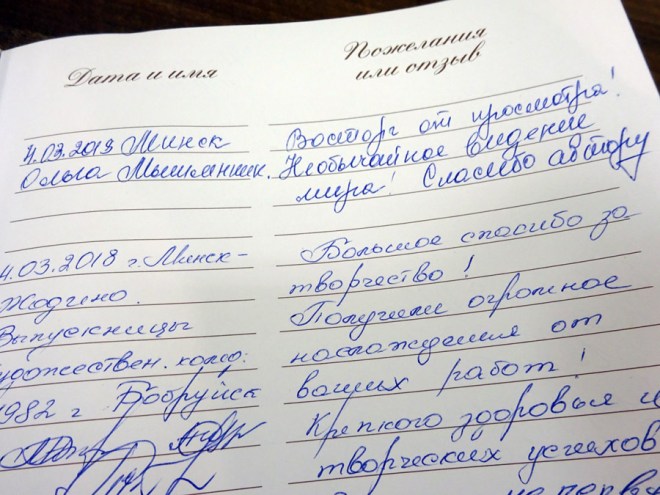 Дата и имя
Пожелания
или отзыв
4.03.2018 Минск
Ольга
Восторг от просмотра!
Необычайное видение
мира! Спасибо автору
4.03.2018 г. Минск-
Жодино.
Выпускницы
художествен.
1982 г Бобруйск
Большое спасибо за
творчество!
Получили огромное
наслаждение от
ваших работ!
Крепкого здоровья и
творческих успехов